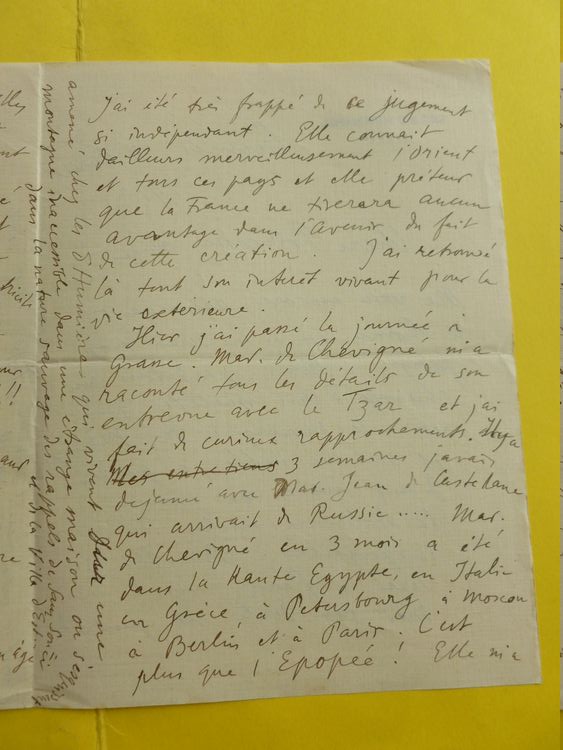 j'ai été très frappé de ce jugement
si indépendant. Elle connait
d'ailleurs merveilleusement l'Orient
et tous ces pays et elle prétend
que la France ne tirera aucun
avantage dans l'avenir du fait
de cette création. J'ai retrouvé
là tout son interêt vivant pour la
vie extérieure.
Hier j'ai passé la journée à
Grasse. Mad. de Chevigné m'a
raconté tous les détails de son
entrevue avec le Tzar et j'ai
fait de curieux rapprochements. Il y a
Mes entretiens 3 semaines j'avais
dejeuné avec Mad. Jean de Castellane
qui arrivait de Russie ..... Mad.
de Chevigné en 3 mois a été
dans la Haute Egypte, en Italie
en Grèce, à Petersbourg à Moscou
à Berlin et à Paris. C'est
plus que l'Epopée! Elle m'a
amené chez les d'Humières qui vivent dans une
montagne inaccessible dans une étrange maison où
dans la nature sauvage des rappels de Sans Souci
et de la Villa d'Este